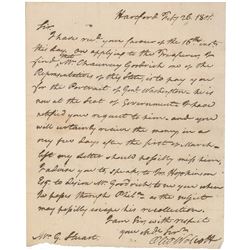 Hartford Feby 26. 1801.
Sir
I have recd your favour of the 16th inst.
this day on applying to the Treasurer to
find Mr Chauncey Goodrich one of the
Representatives of this State, is to pay you
for the Portrait of Genl Washington. he is
now at the Seat of Government & I have
notified your request to him, and you
will certainly receive the money in a
very few days after the first of March
lest my Letter should possibly miss him,
I advise you to speak to Mr Hopkinson
Esqr to desire Mr Goodrich to see you when
he passes through Phila. as the subject
may possibly escape his recollection.
I am Sir with respect
your obdt Servt
Olivr Wolcott
Mr G. Stuart.